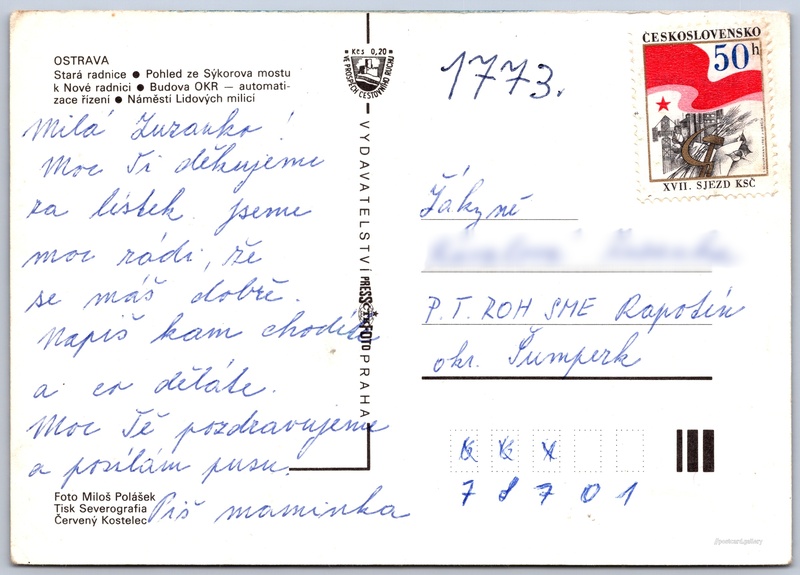 OSTRAVA
Stará radnice ● Pohled ze Sýkorova mostu
k Nové radnici ● Budova OKR — automati-
zace řízení ● Náměstí Lidových milicí
Milá Zuzanko!
Moc Ti děkujeme
za lístek jsme
moc rádi, že
se máš dobře.
Napiš kam chodíte
a co děláte.
Moc Tě pozdravujeme
a posílám pusu.
Piš maminka
Foto Miloš Polášek
Tisk Severografia
Červený Kostelec
Kčs 0,20
VE PROSPĚCH CESTOVNÍHO RUCHU
VYDAVATELSTVÍ PRESSFOTO PRAHA
ČTK
1773.
ČESKOSLOVENSKO
50 h
XVII. SJEZD KSČ
Žákyně
P.T. ROH SME Rapotín
okr. Šumperk
78701